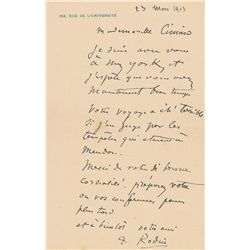 182, RUE DE L'UNIVERSITÉ
23 Mars 1903
Mademoiselle Cimino
Je suis avec vous
à New york et
j'espère que vous avez
maintenant beau temps
Votre voyage a été terrible
si j'en juge par les
tempêtes qui étaient à
Meudon.
Merci de votre si bonne
cordialité, préparez votre
ou vos conférences pour
plus tard
et à bientôt votre ami
A. Rodin